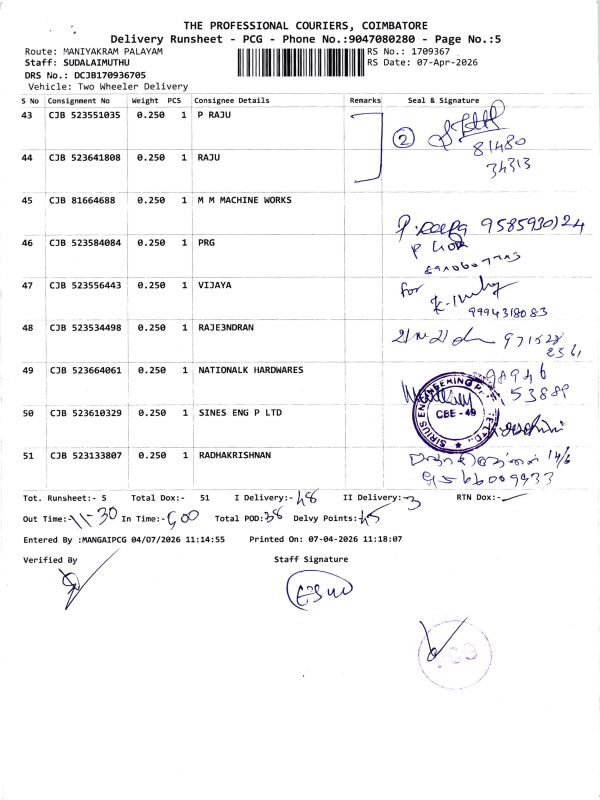 THE PROFESSIONAL COURIERS, COIMBATORE
Delivery Runsheet - PCG - Phone No.:9047080280 - Page No.:5
Route: MANIYAKRAM PALAYAM RS No.: 1709367
Staff: SUDALAIMUTHU RS Date: 07-Apr-2026
DRS No.: DCJB170936705
Vehicle: Two Wheeler Delivery
S No Consignment No Weight PCS Consignee Details Remarks Seal & Signature
43 CJB 523551035 0.250 1 P RAJU
2
81480
34313
44 CJB 523641808 0.250 1 RAJU
45 CJB 81664688 0.250 1 M M MACHINE WORKS
9585930124
46 CJB 523584084 0.250 1 PRG
47 CJB 523556443 0.250 1 VIJAYA
For
9994318083
48 CJB 523534498 0.250 1 RAJE3NDRAN
49 CJB 523664061 0.250 1 NATIONALK HARDWARES
98946
53889
50 CJB 523610329 0.250 1 SINES ENG P LTD
SIRIUS ENGINEERING
CBE - 49
51 CJB 523133807 0.250 1 RADHAKRISHNAN
14/6
9566009933
Tot. Runsheet:- 5 Total Dox:- 51 I Delivery:- 48 II Delivery:- 3 RTN Dox:-
Out Time:- 11-30 In Time:- 5.00 Total POD: 38 Delvy Points:- 45
Entered By :MANGAIPCG 04/07/2026 11:14:55 Printed On: 07-04-2026 11:18:07
Verified By Staff Signature
PCG